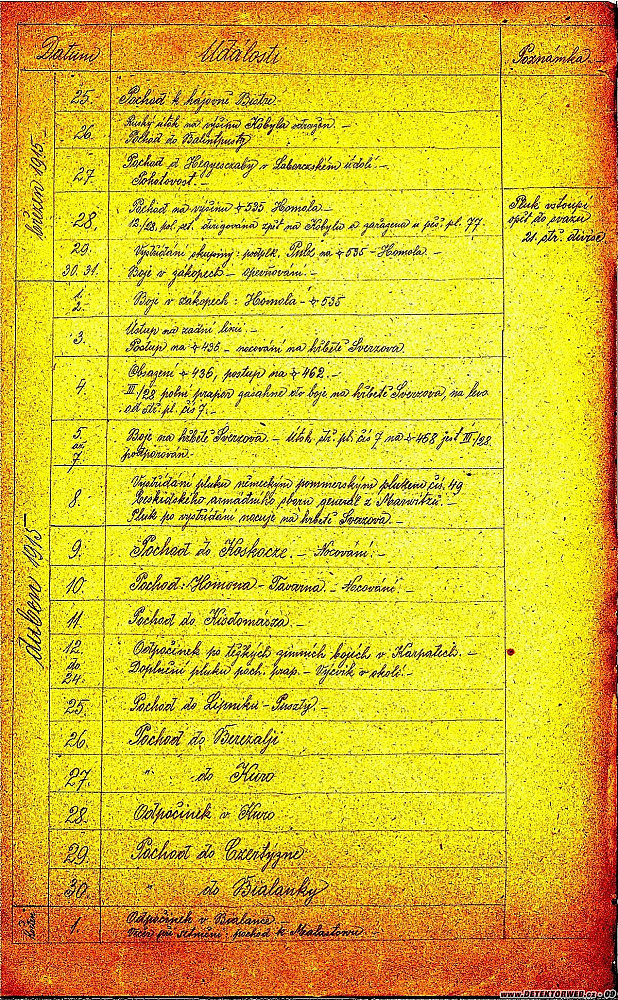 Datum Události Poznámka.
březen 1915
25. Pochod k hájovně Bistre.
26. Ruský útok na výšinu Kobyla odražen. —
Pochod do Balintpusty
27. Pochod d Hegyesczaby v Laborczském údolí. —
Pohotovost. —
28. Pochod na výšinu 535 Homola —
13/28. pol. set. dirigována zpět na Kobylu a zařazena u pěš. pl. 77.
Pluk vstoupí
opět do svazu
21. stř. divise
29. Vystřídání skupiny: podplk. Pulz na 535 – Homola. —
30. 31. Boje v zákopech – opevňování. —
duben 1915
1.
2. Boje v zákopech: Homola – 535
3. Ústup na zadní linii. —
Postup na 436 – nocování na hřbetě Sverzova.
4. Obsazení 436, postup na 462. —
III./28 polní prapor zasáhne do boje na hřbetě Sverzova, na levo
od stř. pl. čís 7. —
5.
až
7. Boje na hřbetě Sverzova. — Útok stř. pl. čís 7 na 468 jest III/28
podporován. —
8. Vystřídání pluku německým pommerským plukem čís. 49
Beskidského armádního sboru generál z Marwitzů. —
Pluk po vystřídání nocuje na hřbetě Sverzova. —
9. Pochod do Koskocze. — Nocování. —
10. Pochod: Homona – Tavarna. — Nocování. —
11. Pochod do Kisdomásza. —
12.
do
24. Odpočinek po těžkých zimních bojích v Karpatech. —
Doplnění pluku poch. prap. — Výcvik v okolí. —
25. Pochod do Lipniku – Puszty. —
26. Pochod do Berezalji
27. " do Kuro
28. Odpočinek v Kuro
29. Pochod do Czertyzne
30. " do Bialanky
květen
1. Odpočinek v Bialance.
Večer pochod k Malastowu. —
www.DETEKTORWEB.cz - 09